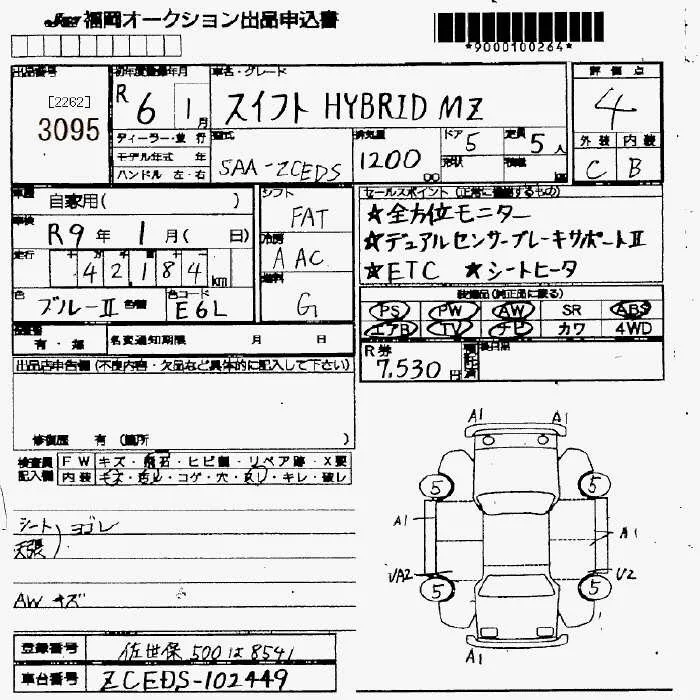 福岡オークション出品申込書
*9000100264*
出品番号
[2262]
3095
初年度登録年月
R 6 1月
車名・グレード
スイフト HYBRID MZ
評価点
4
外装 内装
C B
ディーラー・並行
モデル年式 年
ハンドル 左・右
型式
5AA-ZCEDS
排気量
1200
cc
ドア 5
形状
定員 5人
積載
kg
車歴
自家用( )
車検
R9年 1月( 日)
走行
42,184km
色
ブルーⅡ 色替
色コード
E6L
シフト
FAT
冷房
AAC
燃料
G
セールスポイント (正常に機能するもの)
☆全方位モニター
☆デュアルセンサーブレーキサポートⅡ
☆ETC ☆シートヒータ
装備品 (純正品に限る)
PS PW AW SR ABS
エアB TV ナビ カワ 4WD
有・無
名変通知期限 月 日
R券
7,530円
出品店申告欄 (不良内容・欠品など具体的に記入して下さい)
修復歴 有 (箇所 )
検査員記入欄
FW キズ・飛石・ヒビ割・リペア跡・X要
内装 キズ・汚れ・コゲ・穴・ヌリ・キレ・破レ
シート
天張
ヨゴレ
AW キズ
A1 A1
5 5
A1 A1
UA2 U2
5 5
A1
登録番号
佐世保 500 は 8541
車台番号
ZCEDS-102449